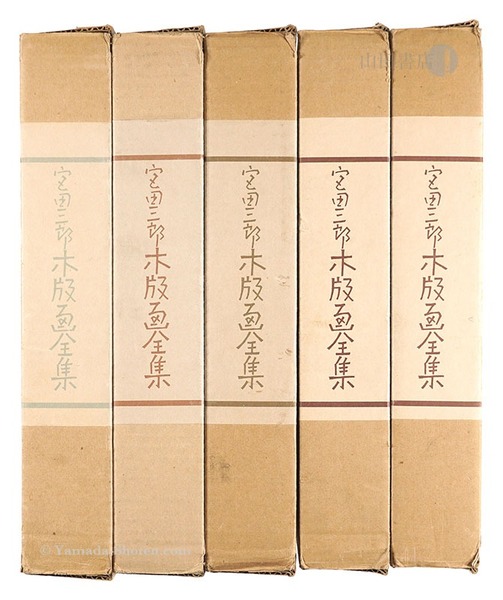 宮田三郎木版画全集
宮田三郎木版画全集
宮田三郎木版画全集
宮田三郎木版画全集
宮田三郎木版画全集
山田書店
© Yamada-Shoten.com